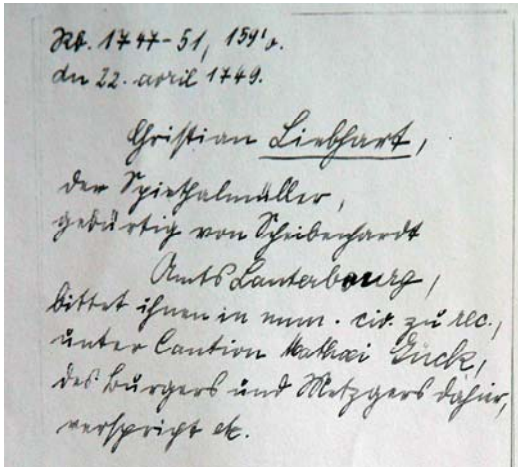 Rb. 1747-51, 159'v.
dn 22. april 1749.
Christian Liebhart,
der Spiethalmüller,
gebürtig von Scheibenhardt
Amts Lauterbourg,
bittet ihnen in num. civ. zu rec.,
unter Caution Mathaei Zück,
des Burgers und Metzgers dahir,
verspricht etc.